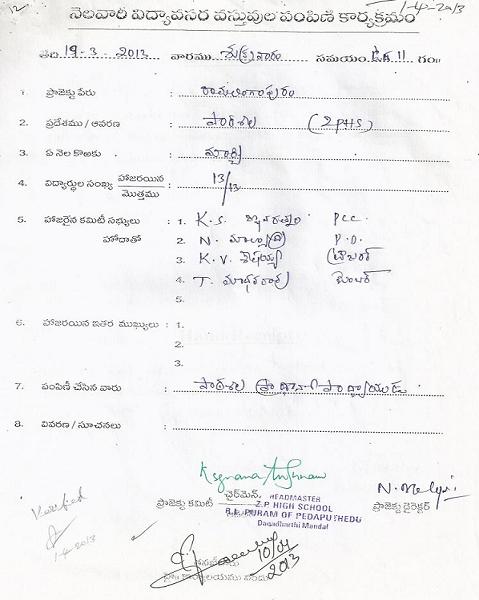 12
1-4-2013
నెలవారీ విద్యావసర వస్తువుల పంపిణి కార్యక్రమం
తేది 19-3-2013 వారము సమయం 11 గం॥
1. ప్రాజెక్టు పేరు : రామలింగాపురం
2. ప్రదేశము / ఆవరణ : పాఠశాల (ZPHS)
3. ఏ నెల కొఱకు : మార్చి
4. విద్యార్థుల సంఖ్య హాజరయిన / మొత్తము : 13/13
5. హాజరైన కమిటీ సభ్యులు హోదాతో : 1. K.S. జ్ఞానరత్నం PCC.
2. N. P.D.
3. K.V. శేషయ్య ట్రెజరర్
4. T. మాధవరావు మెంబర్
5.
6. హాజరయిన ఇతర ముఖ్యులు : 1.
2.
3.
7. పంపిణీ చేసిన వారు : పాఠశాల ప్రధానోపాధ్యాయుడు
8. వివరణ / సూచనలు :
చైర్‌మెన్,
ప్రాజెక్టు కమిటీ
HEADMASTER
Z.P HIGH SCHOOL
R.L. PURAM OF PEDAPUTHEDU
Dagadharthi Mandal
ప్రాజెక్టు డైరెక్టర్
Verified
1-4-2013
10/04/2013